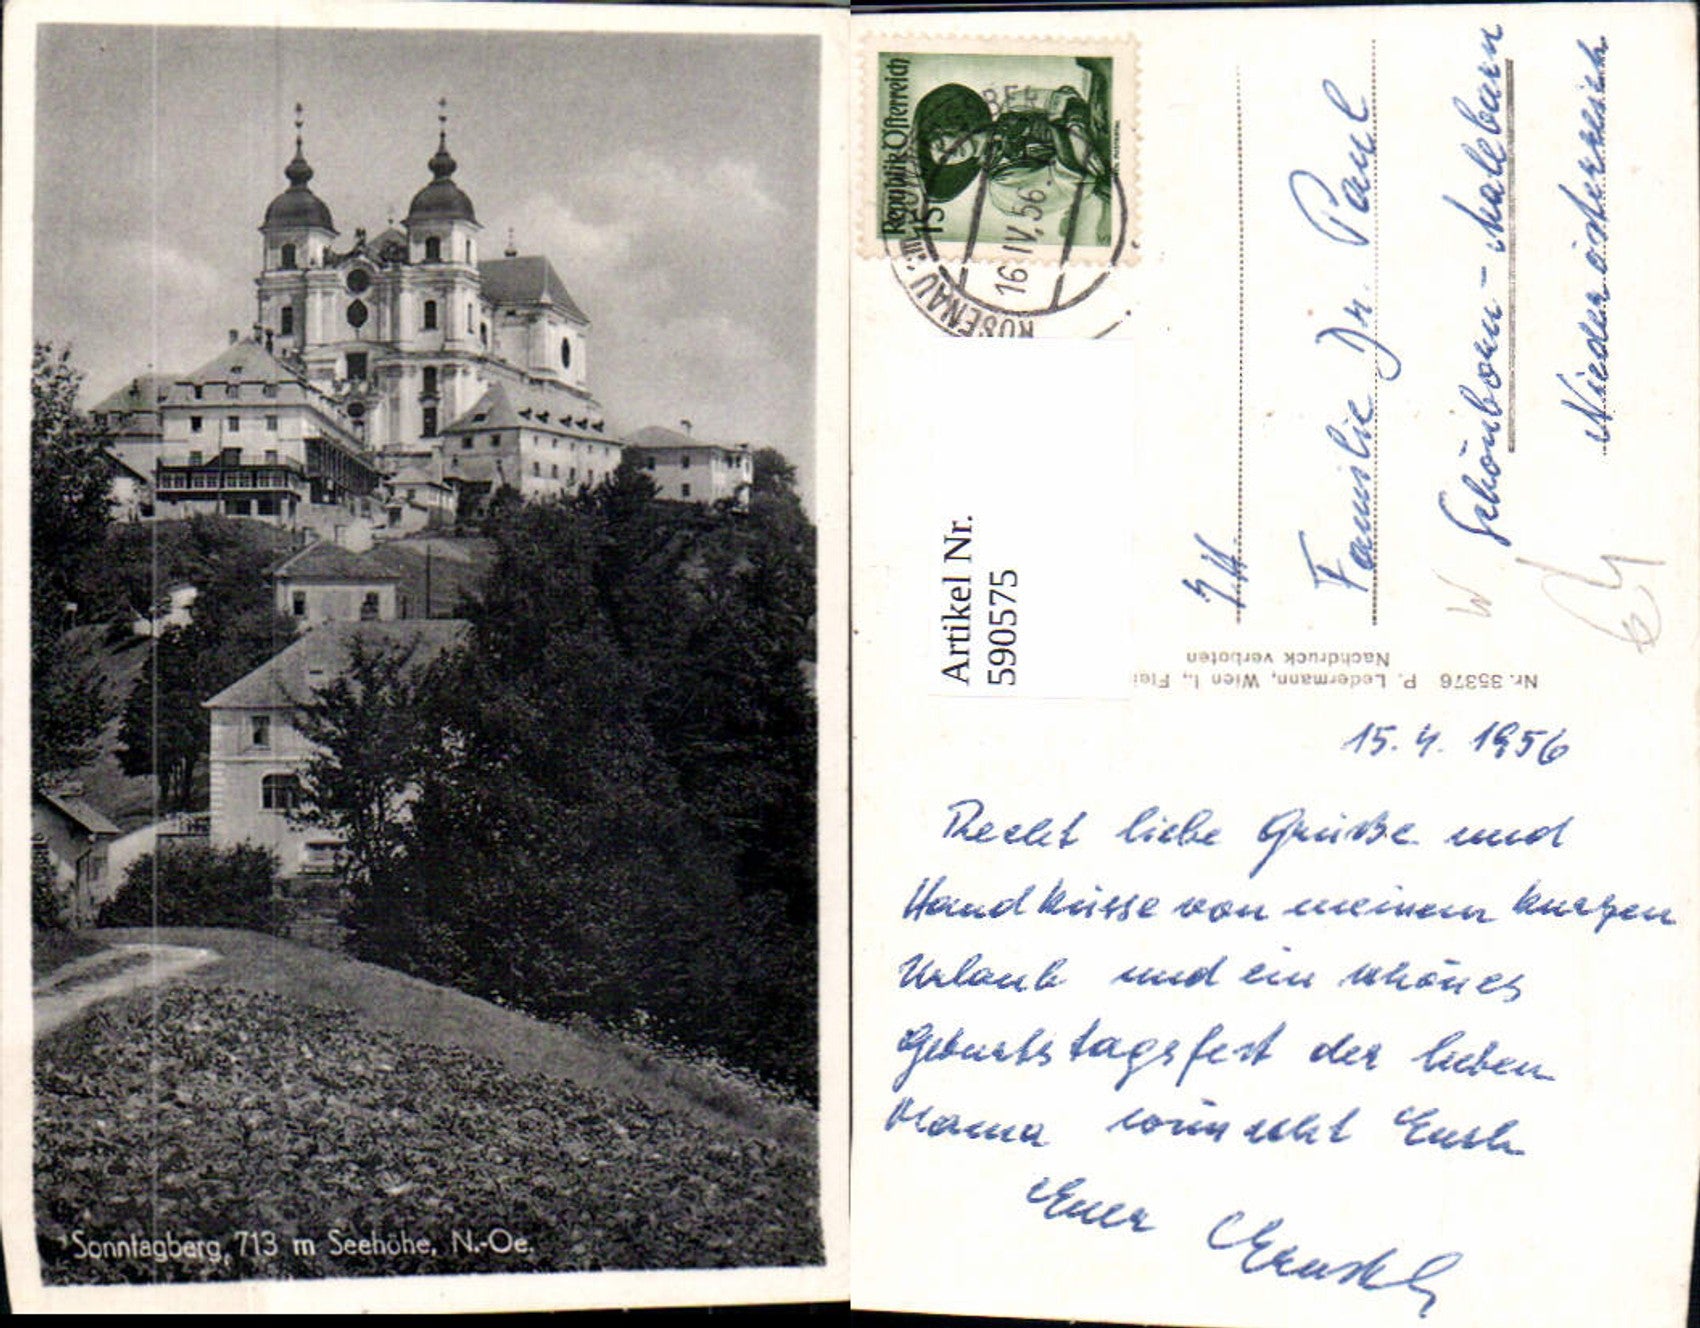 Sonntagberg, 713 m Seehöhe, N.-Oe.
Republik Österreich
15
ROSENAU
16.IV.56
Artikel Nr.
5905575
Familie Dr. Paul
Schönborn-Malebarn
Niederösterreich
Nr. 35376 P. Ledermann, Wien I.,
Nachdruck verboten
15. 4. 1956
Recht liebe Grüße und
Handküsse von meinem kurzen
Urlaub und ein schönes
Geburtstagsfest der lieben
Mama wünscht Euch
Euer